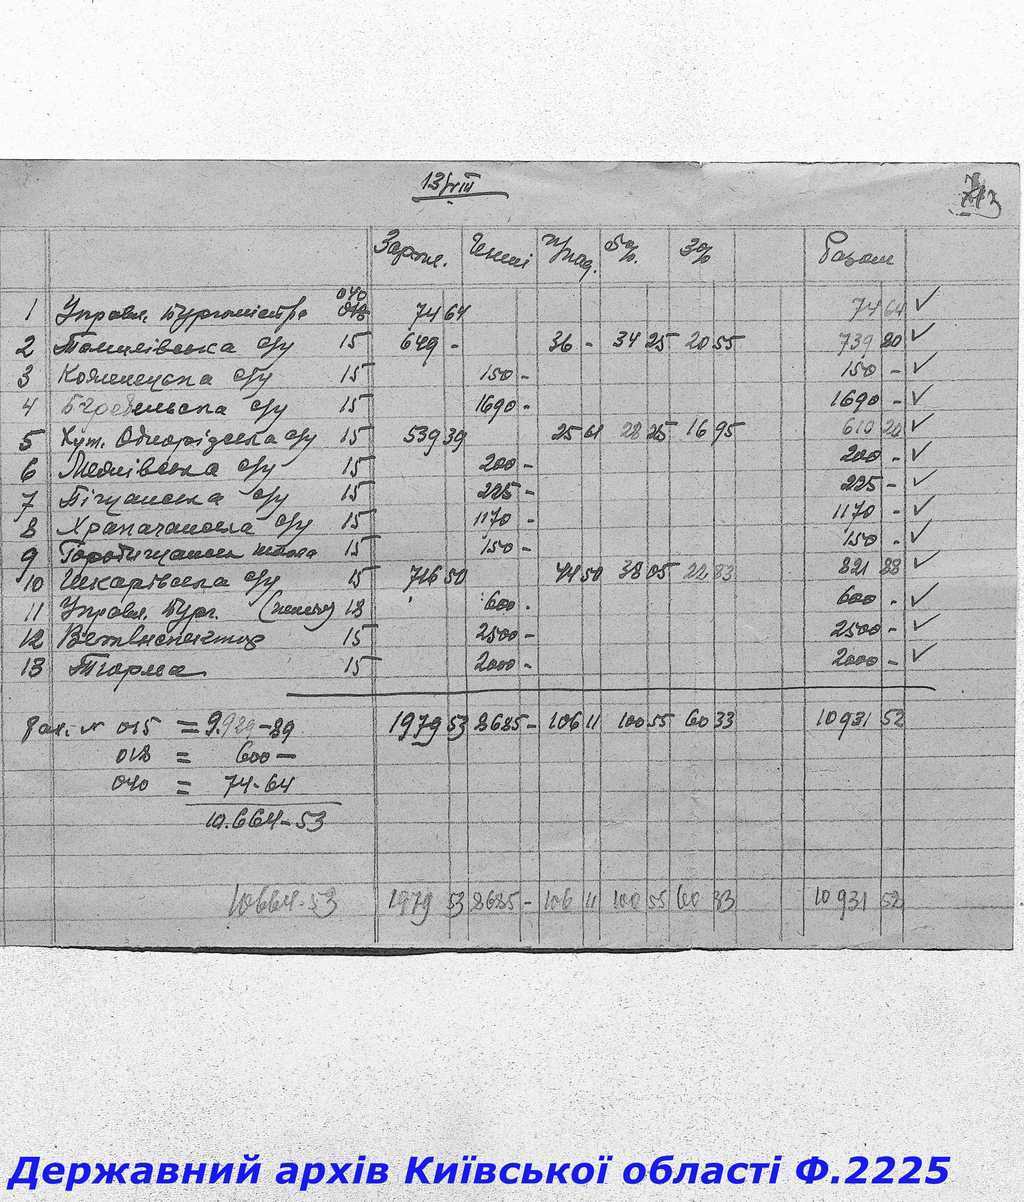 13/VIII
Зарпл. Пенсії Прад. 5% 3% Разом
1 Управл. Бургомістра 040 74 64 74 64 ✓
2 Томилівська с/у 15 649 - 36 - 34 25 20 55 739 80 ✓
3 с/у 15 150 - 150 - ✓
4 с/у 15 1690 - 1690 - ✓
5 Хут. с/у 15 539 39 25 61 28 25 16 95 610 20 ✓
6 с/у 15 200 - 200 - ✓
7 Піщанська с/у 15 225 - 225 - ✓
8 Храпачанська с/у 15 1170 - 1170 - ✓
9 школа 15 150 - 150 - ✓
10 Шкарівська с/у 15 716 50 44 50 38 05 22 83 821 88 ✓
11 Управл. Бург. 18 600 - 600 - ✓
12 15 2500 - 2500 - ✓
13 Тюрма 15 2000 - 2000 - ✓
Рах. № 015 = 9.989-89 1979 53 8685 - 106 11 100 55 60 33 10 931 52
018 = 600 -
040 = 74-64
10.664-53
10664-53 1979 53 8685 - 106 11 100 55 60 33 10 931 52
Державний архів Київської області Ф.2225